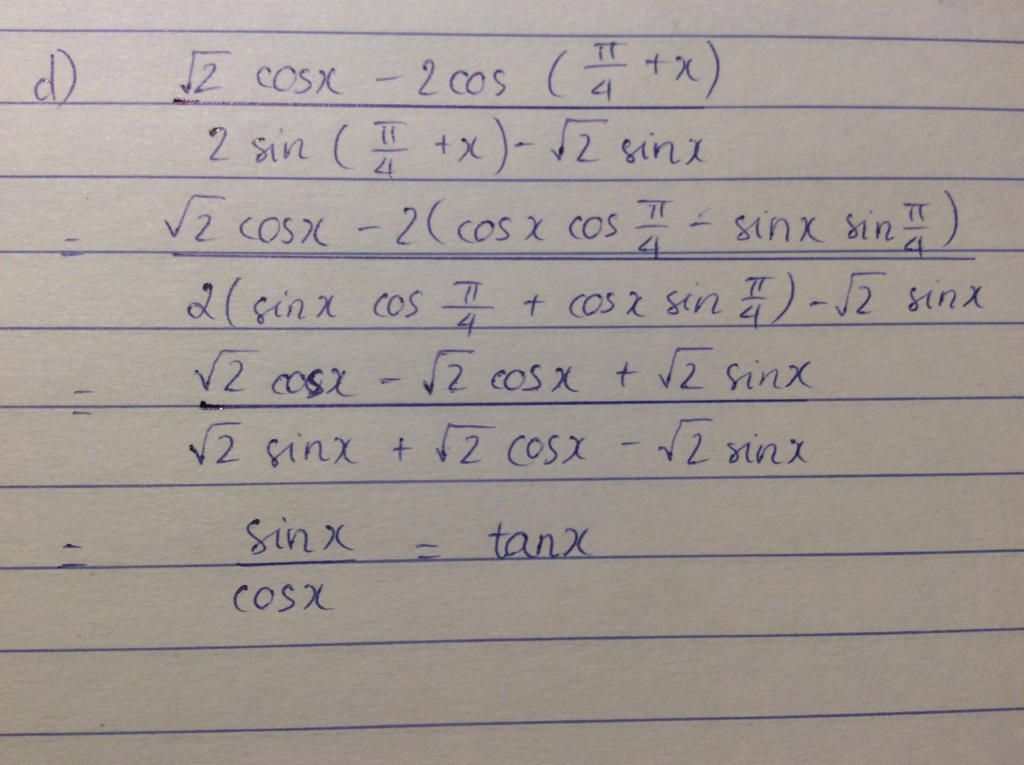 d) √2 cosx - 2cos (π/4 + x)
2 sin (π/4 + x) - √2 sinx
= √2 cosx - 2(cosx cos π/4 - sinx sin π/4)
2(sinx cos π/4 + cosx sin π/4) - √2 sinx
= √2 cosx - √2 cosx + √2 sinx
√2 sinx + √2 cosx - √2 sinx
= sinx = tanx
cosx